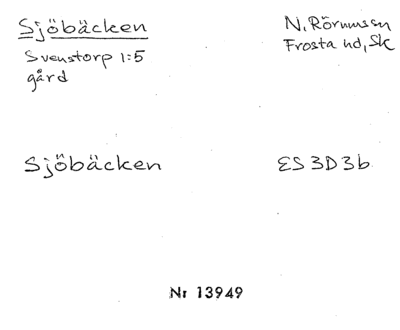 Sjöbäcken
Svenstorp 1:5
gård
N. Rörumssn
Frosta hd, Sk
Sjöbäcken
ES 3D3b
Nr 13949